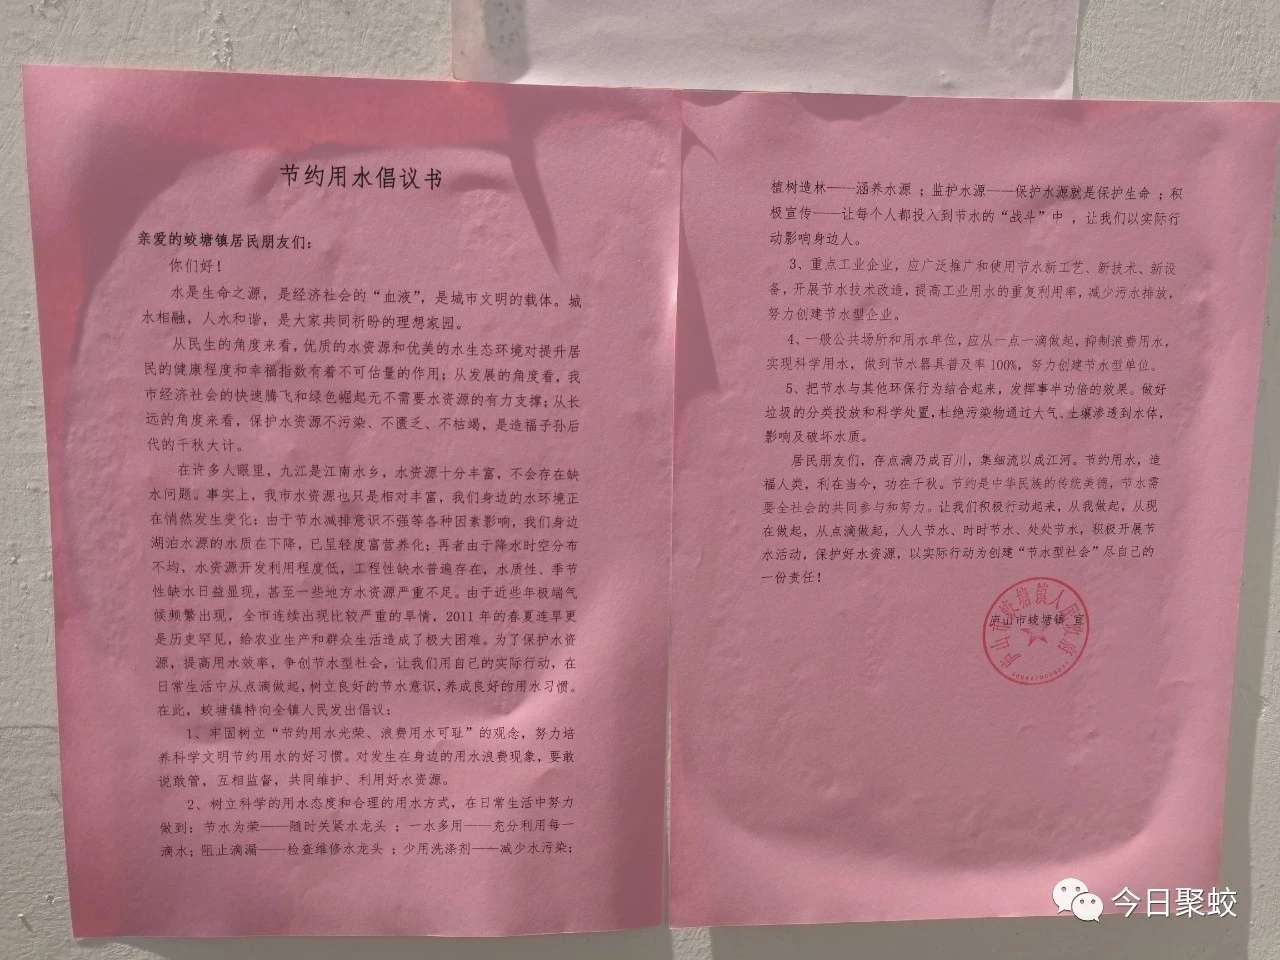 节约用水倡议书
亲爱的蛟塘镇居民朋友们：
你们好！
水是生命之源，是经济社会的“血液”，是城市文明的载体。城
水相融，人水和谐，是大家共同祈盼的理想家园。
从民生的角度来看，优质的水资源和优美的水生态环境对提升居
民的健康程度和幸福指数有着不可估量的作用；从发展的角度看，我
市经济社会的快速腾飞和绿色崛起无不需要水资源的有力支撑；从长
远的角度来看，保护水资源不污染、不匮乏、不枯竭，是造福子孙后
代的千秋大计。
在许多人眼里，九江是江南水乡，水资源十分丰富，不会存在缺
水问题。事实上，我市水资源也只是相对丰富，我们身边的水环境正
在悄然发生变化：由于节水减排意识不强等各种因素影响，我们身边
湖泊水源的水质在下降，已呈轻度富营养化；再者由于降水时空分布
不均，水资源开发利用程度低，工程性缺水普遍存在，水质性、季节
性缺水日益显现，甚至一些地方水资源严重不足。由于近些年极端气
候频繁出现，全市连续出现比较严重的旱情，2011年的春夏连旱更
是历史罕见，给农业生产和群众生活造成了极大困难。为了保护水资
源，提高用水效率，争创节水型社会，让我们用自己的实际行动，在
日常生活中从点滴做起，树立良好的节水意识，养成良好的用水习惯。
在此，蛟塘镇特向全镇人民发出倡议：
1、牢固树立“节约用水光荣、浪费用水可耻”的观念，努力培
养科学文明节约用水的好习惯。对发生在身边的用水浪费现象，要敢
说敢管，互相监督，共同维护、利用好水资源。
2、树立科学的用水态度和合理的用水方式，在日常生活中努力
做到：节水为荣——随时关紧水龙头；一水多用——充分利用每一
滴水；阻止滴漏——检查维修水龙头；少用洗涤剂——减少水污染；
植树造林——涵养水源；监护水源——保护水源就是保护生命；积
极宣传——让每个人都投入到节水的“战斗”中，让我们以实际行
动影响身边人。
3、重点工业企业，应广泛推广和使用节水新工艺、新技术、新设
备，开展节水技术改造，提高工业用水的重复利用率，减少污水排放，
努力创建节水型企业。
4、一般公共场所和用水单位，应从一点一滴做起，抑制浪费用水，
实现科学用水，做到节水器具普及率100%，努力创建节水型单位。
5、把节水与其他环保行为结合起来，发挥事半功倍的效果。做好
垃圾的分类投放和科学处置，杜绝污染物通过大气、土壤渗透到水体，
影响及破坏水质。
居民朋友们，存点滴乃成百川，集细流以成江河。节约用水，造
福人类，利在当今，功在千秋。节约是中华民族的传统美德，节水需
要全社会的共同参与和努力。让我们积极行动起来，从我做起，从现
在做起，从点滴做起，人人节水、时时节水、处处节水，积极开展节
水活动，保护好水资源，以实际行动为创建“节水型社会”尽自己的
一份责任！
庐山市蛟塘镇 宣
庐山市蛟塘镇人民政府
今日聚蛟